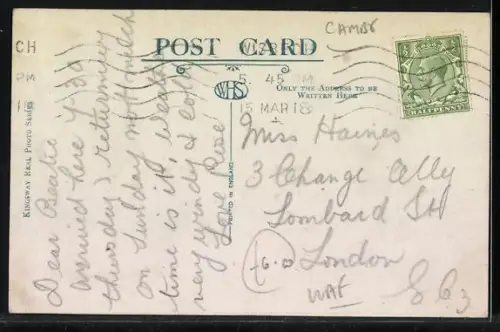 CAMBS
POST CARD
WISBECH
5.45 PM
15 MAR 18
CH
PM
WHS
ONLY THE ADDRESS TO BE
WRITTEN HERE
HALFPENNY
KINGSWAY REAL PHOTO SERIES
PRINTED IN ENGLAND
Dear Beatie
arrived here
thursday) returning
on Sunday not much
time is it, weather
very windy & cold
Love Rose
Miss Haines
3 Change Ally
Lombard St
London
E C 3